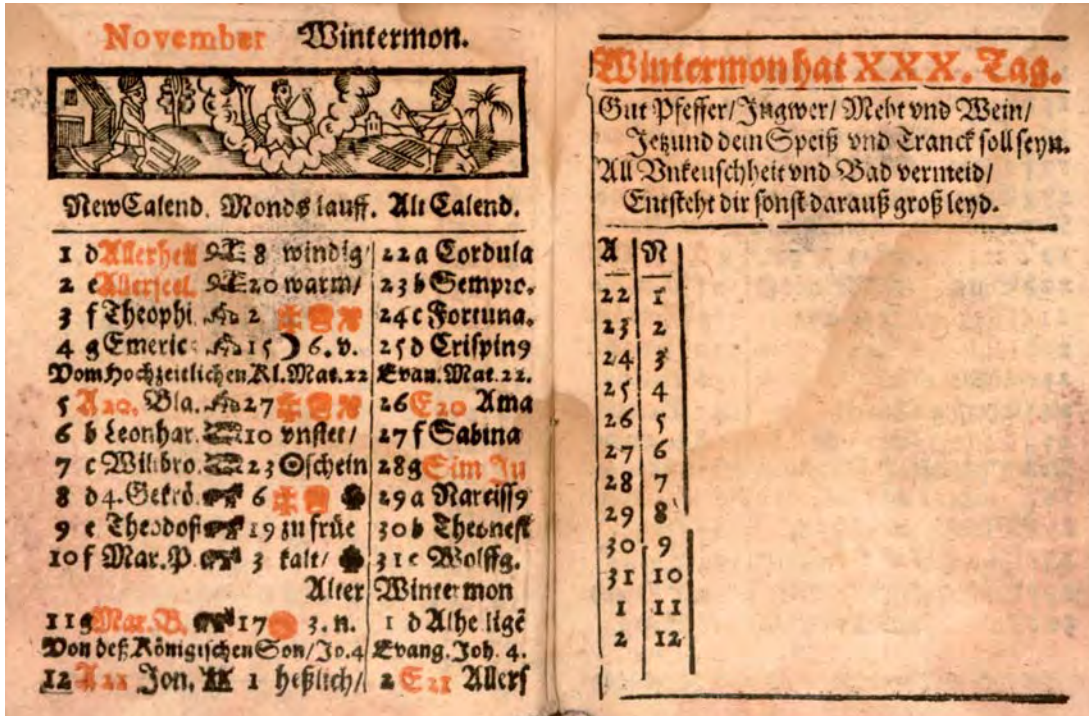 November Wintermon.
NewCalend. Monds lauff. Alt Calend.
1 d Allerheil 8 windig/ 22 a Cordula
2 e Allerseel. 20 warm/ 23 b Sempro.
3 f Theophi. 2 24 c Fortuna.
4 g Emeric: 15 ☽ 6. v. 25 d Crispin9
Vom Hochzeitlichen Kl. Mat. 22 Evan. Mat. 22.
5 A 20. Bla. 27 26 E 20 Ama
6 b Leonhar. 10 vnstet/ 27 f Sabina
7 c Wilibro. 23 ☉schein 28 g Sim Ju
8 d 4. Gekrö. 6 29 a Narciss9
9 e Theodosi 19 zu früe 30 b Theonest
10 f Mar. P. 3 kalt/ 31 c Wolffg.
Alter Wintermon
11 g Mar. B. 17 3. n. 1 d Alhe ligē
Von deß Königischen Son/ Jo. 4 Evang. Joh. 4.
12 A 21 Jon. 1 heßlich/ 2 E 21 Allers
Wintermon hat XXX. Tag.
Gut Pfeffer/ Ingwer/ Meht vnd Wein/
Jetzund dein Speiß vnd Tranck soll seyn.
All Vnkeuschheit vnd Bad vermeid/
Entsteht dir sonst darauß groß leyd.
A N
22 1
23 2
24 3
25 4
26 5
27 6
28 7
29 8
30 9
31 10
1 11
2 12